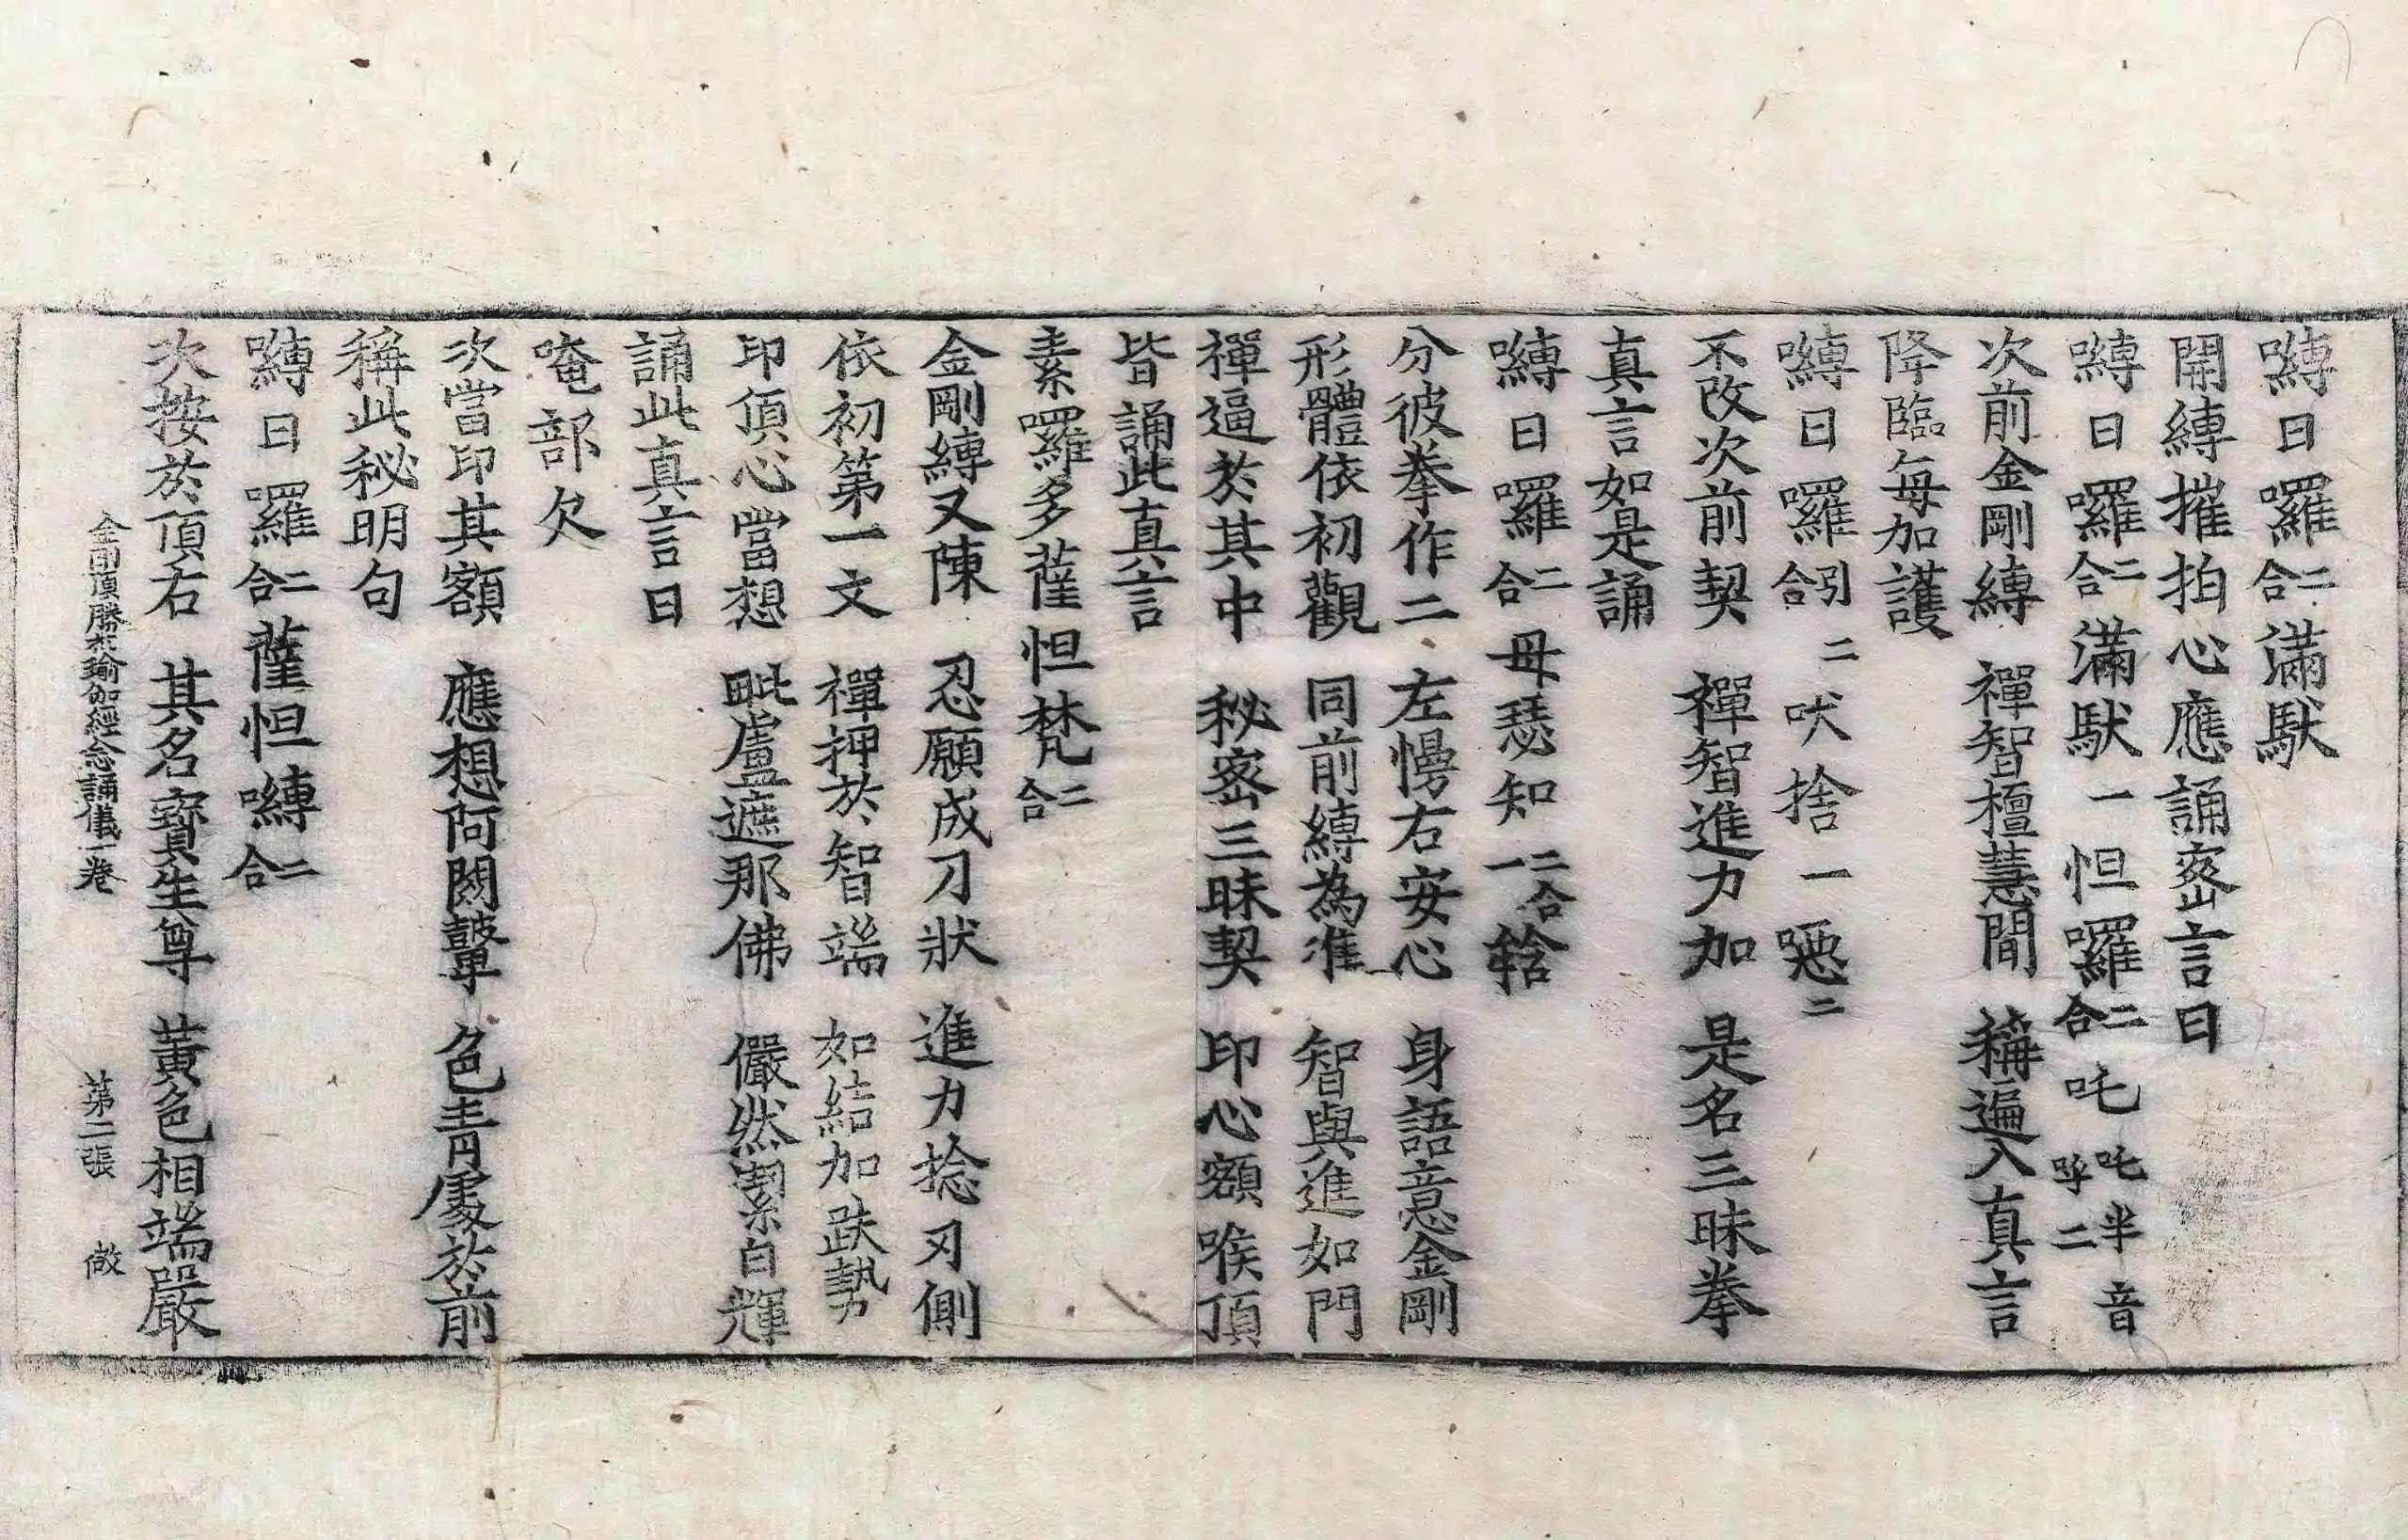 嚩日囉二合滿馱
開縛摧拍心應誦密言曰
嚩日囉二合滿馱一怛囉二合吒吒半音呼二
次前金剛縛　禪智檀慧間　稱遍入真言
降臨每加護
嚩日囉引合二吠捨一噁二
不改次前契　禪智進力加　是名三昧拳
真言如是誦
嚩日囉二合母瑟知二合一𤚥
分彼拳作二　左慢右安心　身語意金剛
形體依初觀　同前縛為准　智與進如門
禪逼於其中　秘密三昧契　印心額喉頂
皆誦此真言
素囉多薩怛梵二合
金剛縛又陳　忍願成刀狀　進力捻刃側
依初第一文　禪押於智端　如結加趺勢
印頂心當想　毗盧遮那佛　儼然鬀白輝
誦此真言曰
唵部欠
次當印其額　應想阿閦鼙　色青處於前
稱此秘明句
嚩日囉二合薩怛嚩二合
次按於頂右　其名寶生尊　黃色相端嚴
金剛頂勝初瑜伽經念誦儀一卷　第二張　㪣